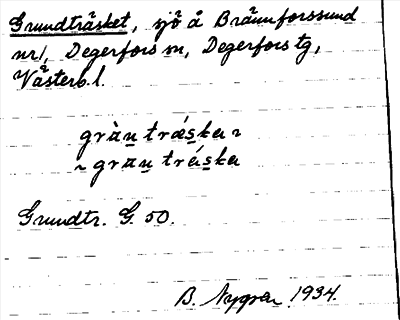 Grundträsket, sjö å Brännforssund
nr 1, Degerfors sn, Degerfors tg,
Västerb. l.
gràn tráska ~
~ gran tráska
Grundtr. G. 50.
B. Nygren 1934.